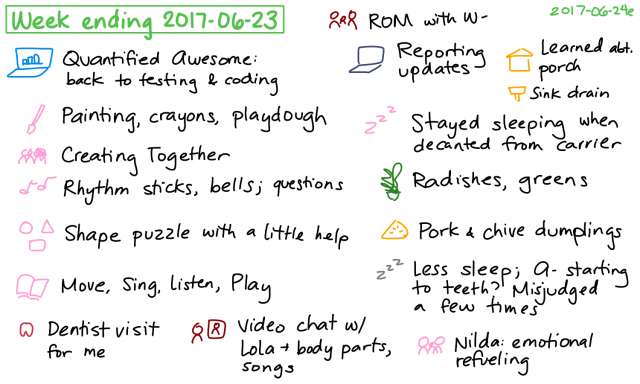 Week ending 2017-06-23
2017-06-24e
Quantified Awesome:
back to testing & coding
Painting, crayons, playdough
Creating Together
Rhythm sticks, bells; questions
Shape puzzle with a little help
Move, Sing, Listen, Play
Dentist visit
for me
R
Video chat w/
Lola → body parts,
songs
ROM with W-
Reporting
updates
Learned abt.
porch
Sink drain
zzz
Stayed sleeping when
decanted from carrier
Radishes, greens
Pork & chive dumplings
zzz
Less sleep; A- starting
to teeth? Misjudged
a few times
Nilda: emotional
refueling